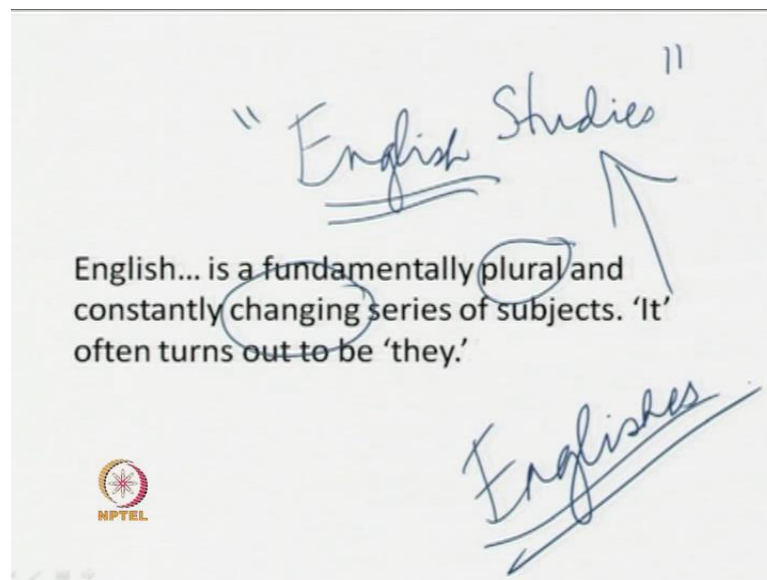 "English Studies"
English... is a fundamentally plural and
constantly changing series of subjects. ‘It’
often turns out to be ‘they.’
Englishes
NPTEL